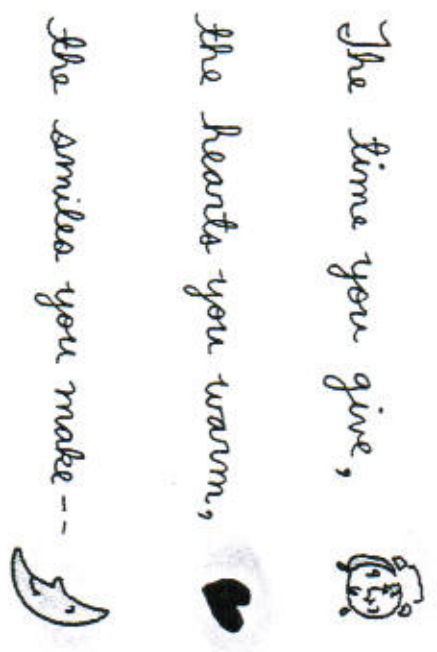 The time you give,
the hearts you warm,
the smiles you make--